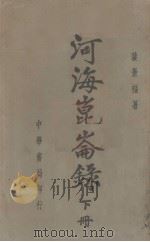 裴景福著
河海崑崙錄
下冊
中華書局印行